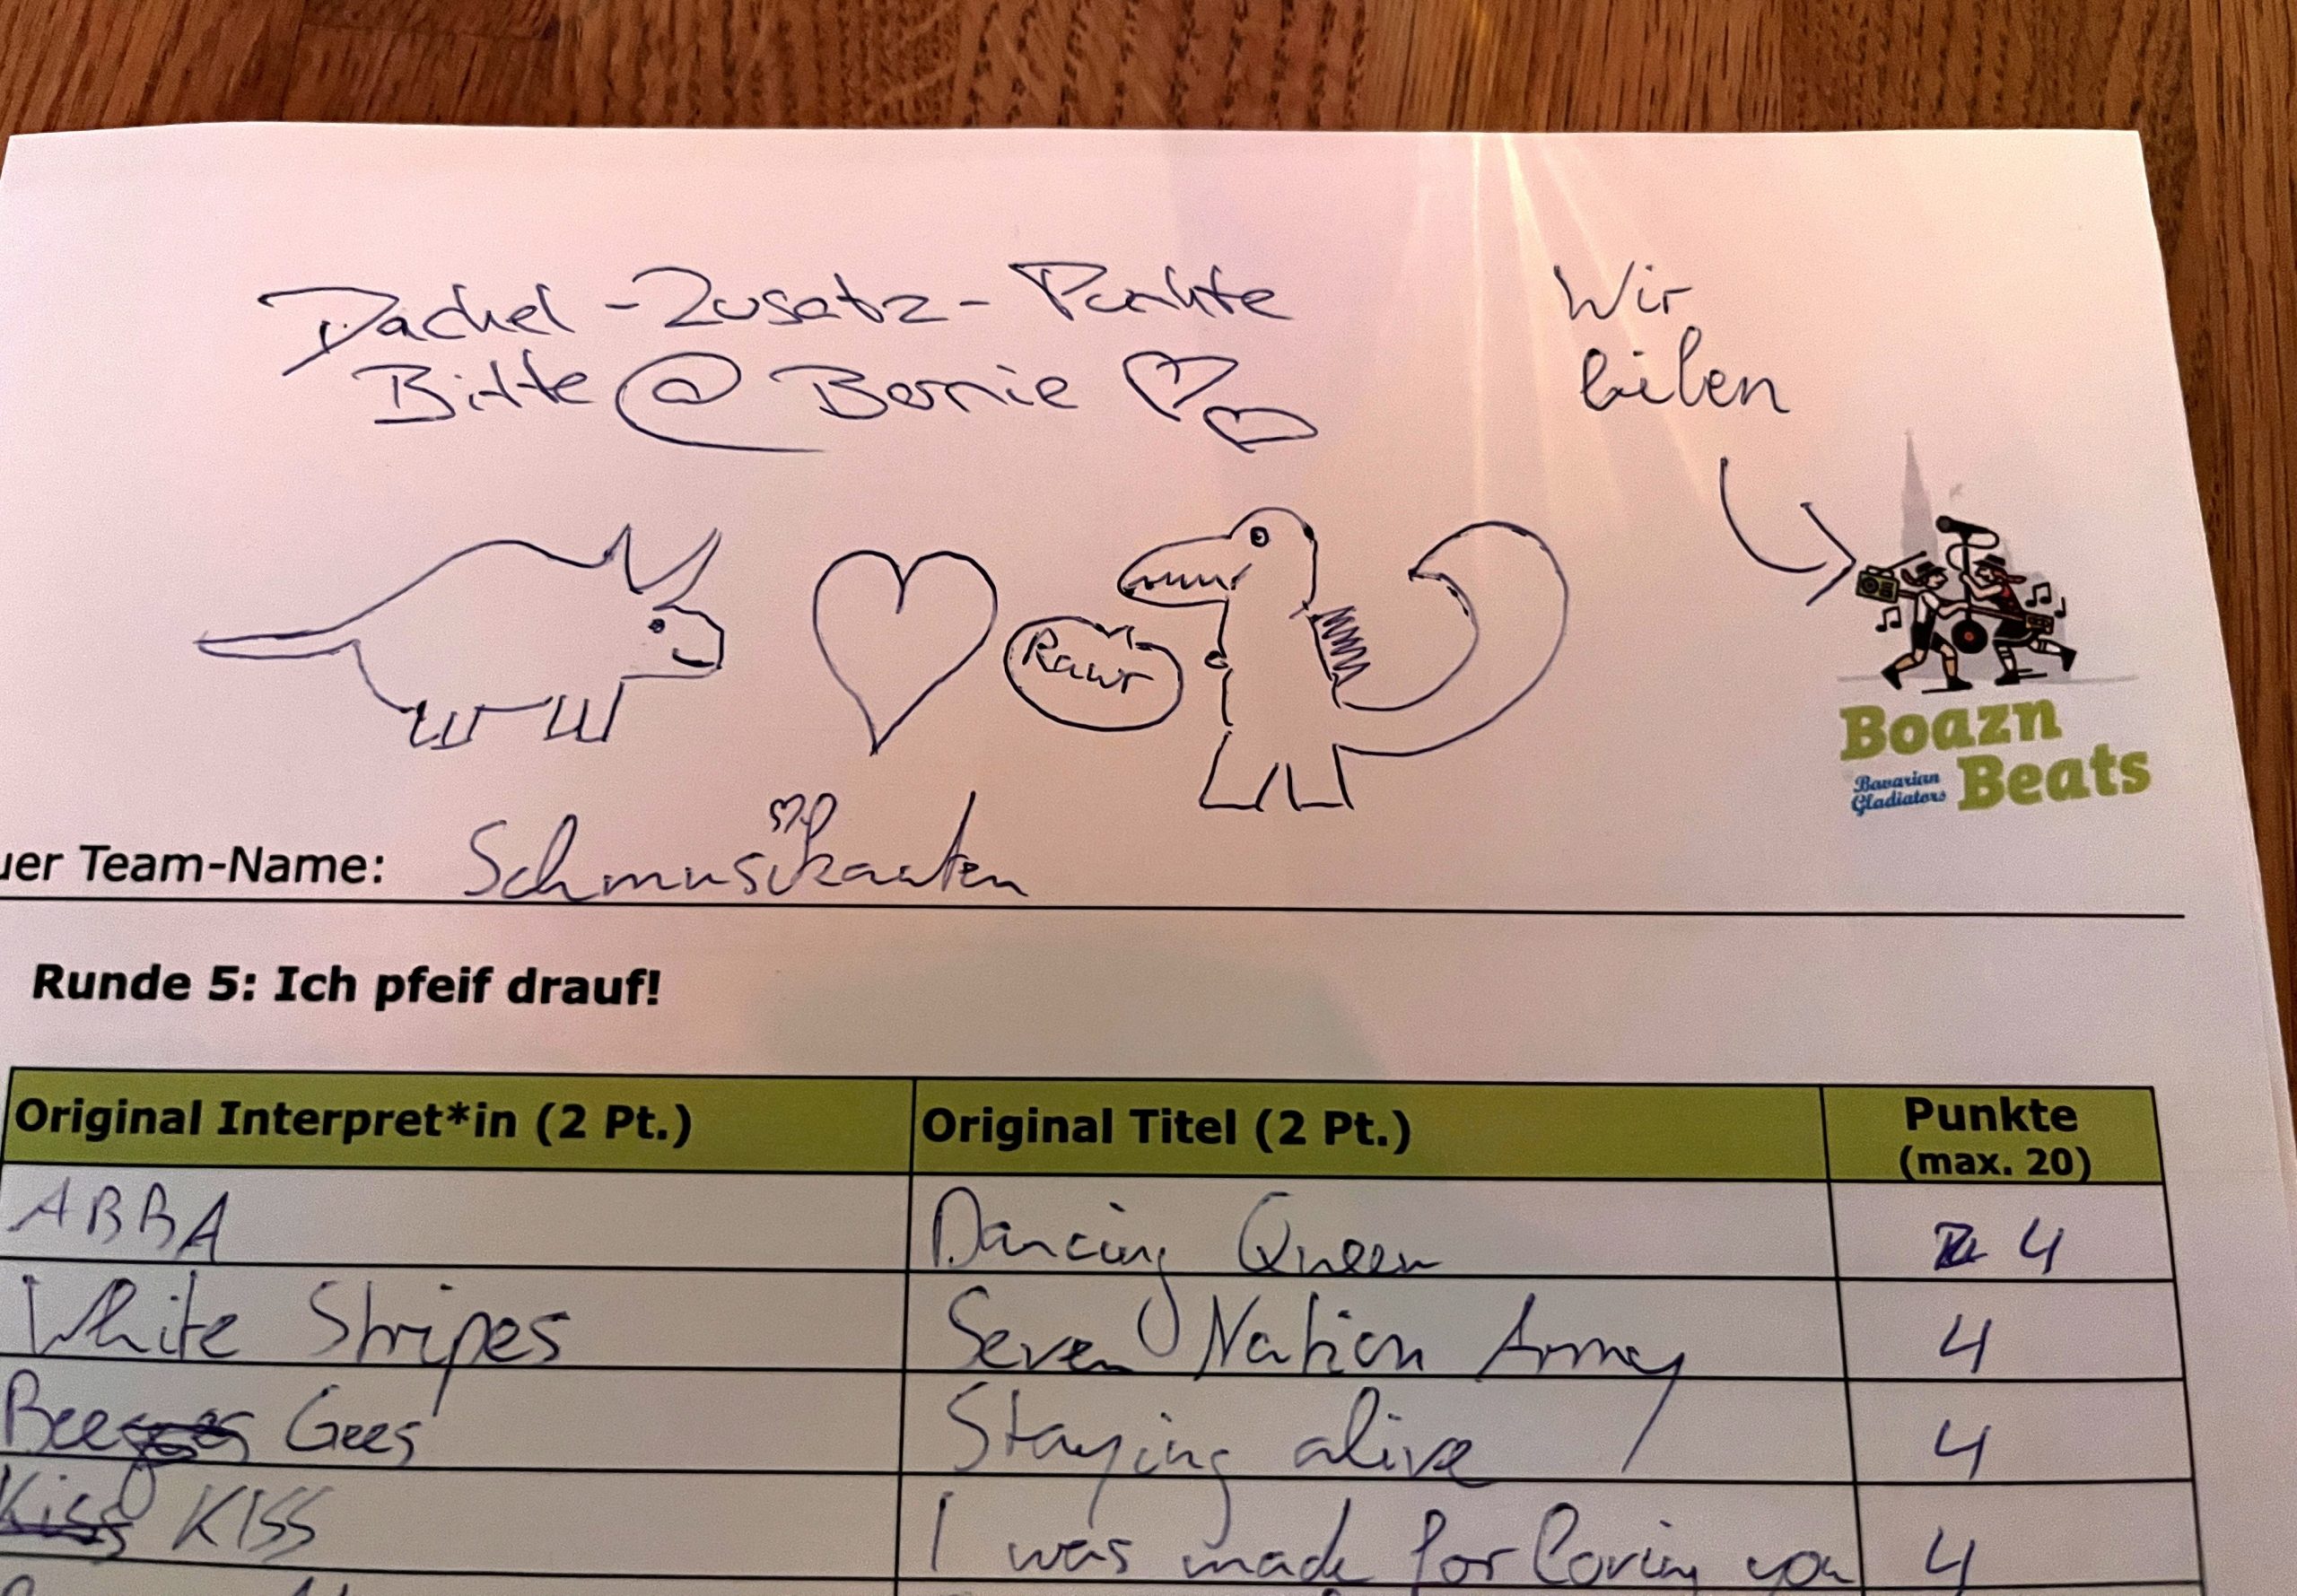 Dackel-Zusatz-Punkte
Bitte @ Bernie
Wir
lieben
Rawr
Boazn
Bavarian
Gladiators
Beats
uer Team-Name: Schmusikanten
Runde 5: Ich pfeif drauf!
Original Interpret*in (2 Pt.) Original Titel (2 Pt.) Punkte
(max. 20)
ABBA Dancing Queen 4
White Stripes Seven Nation Army 4
Bee Gees Staying alive 4
Kiss KISS I was made for loving you 4